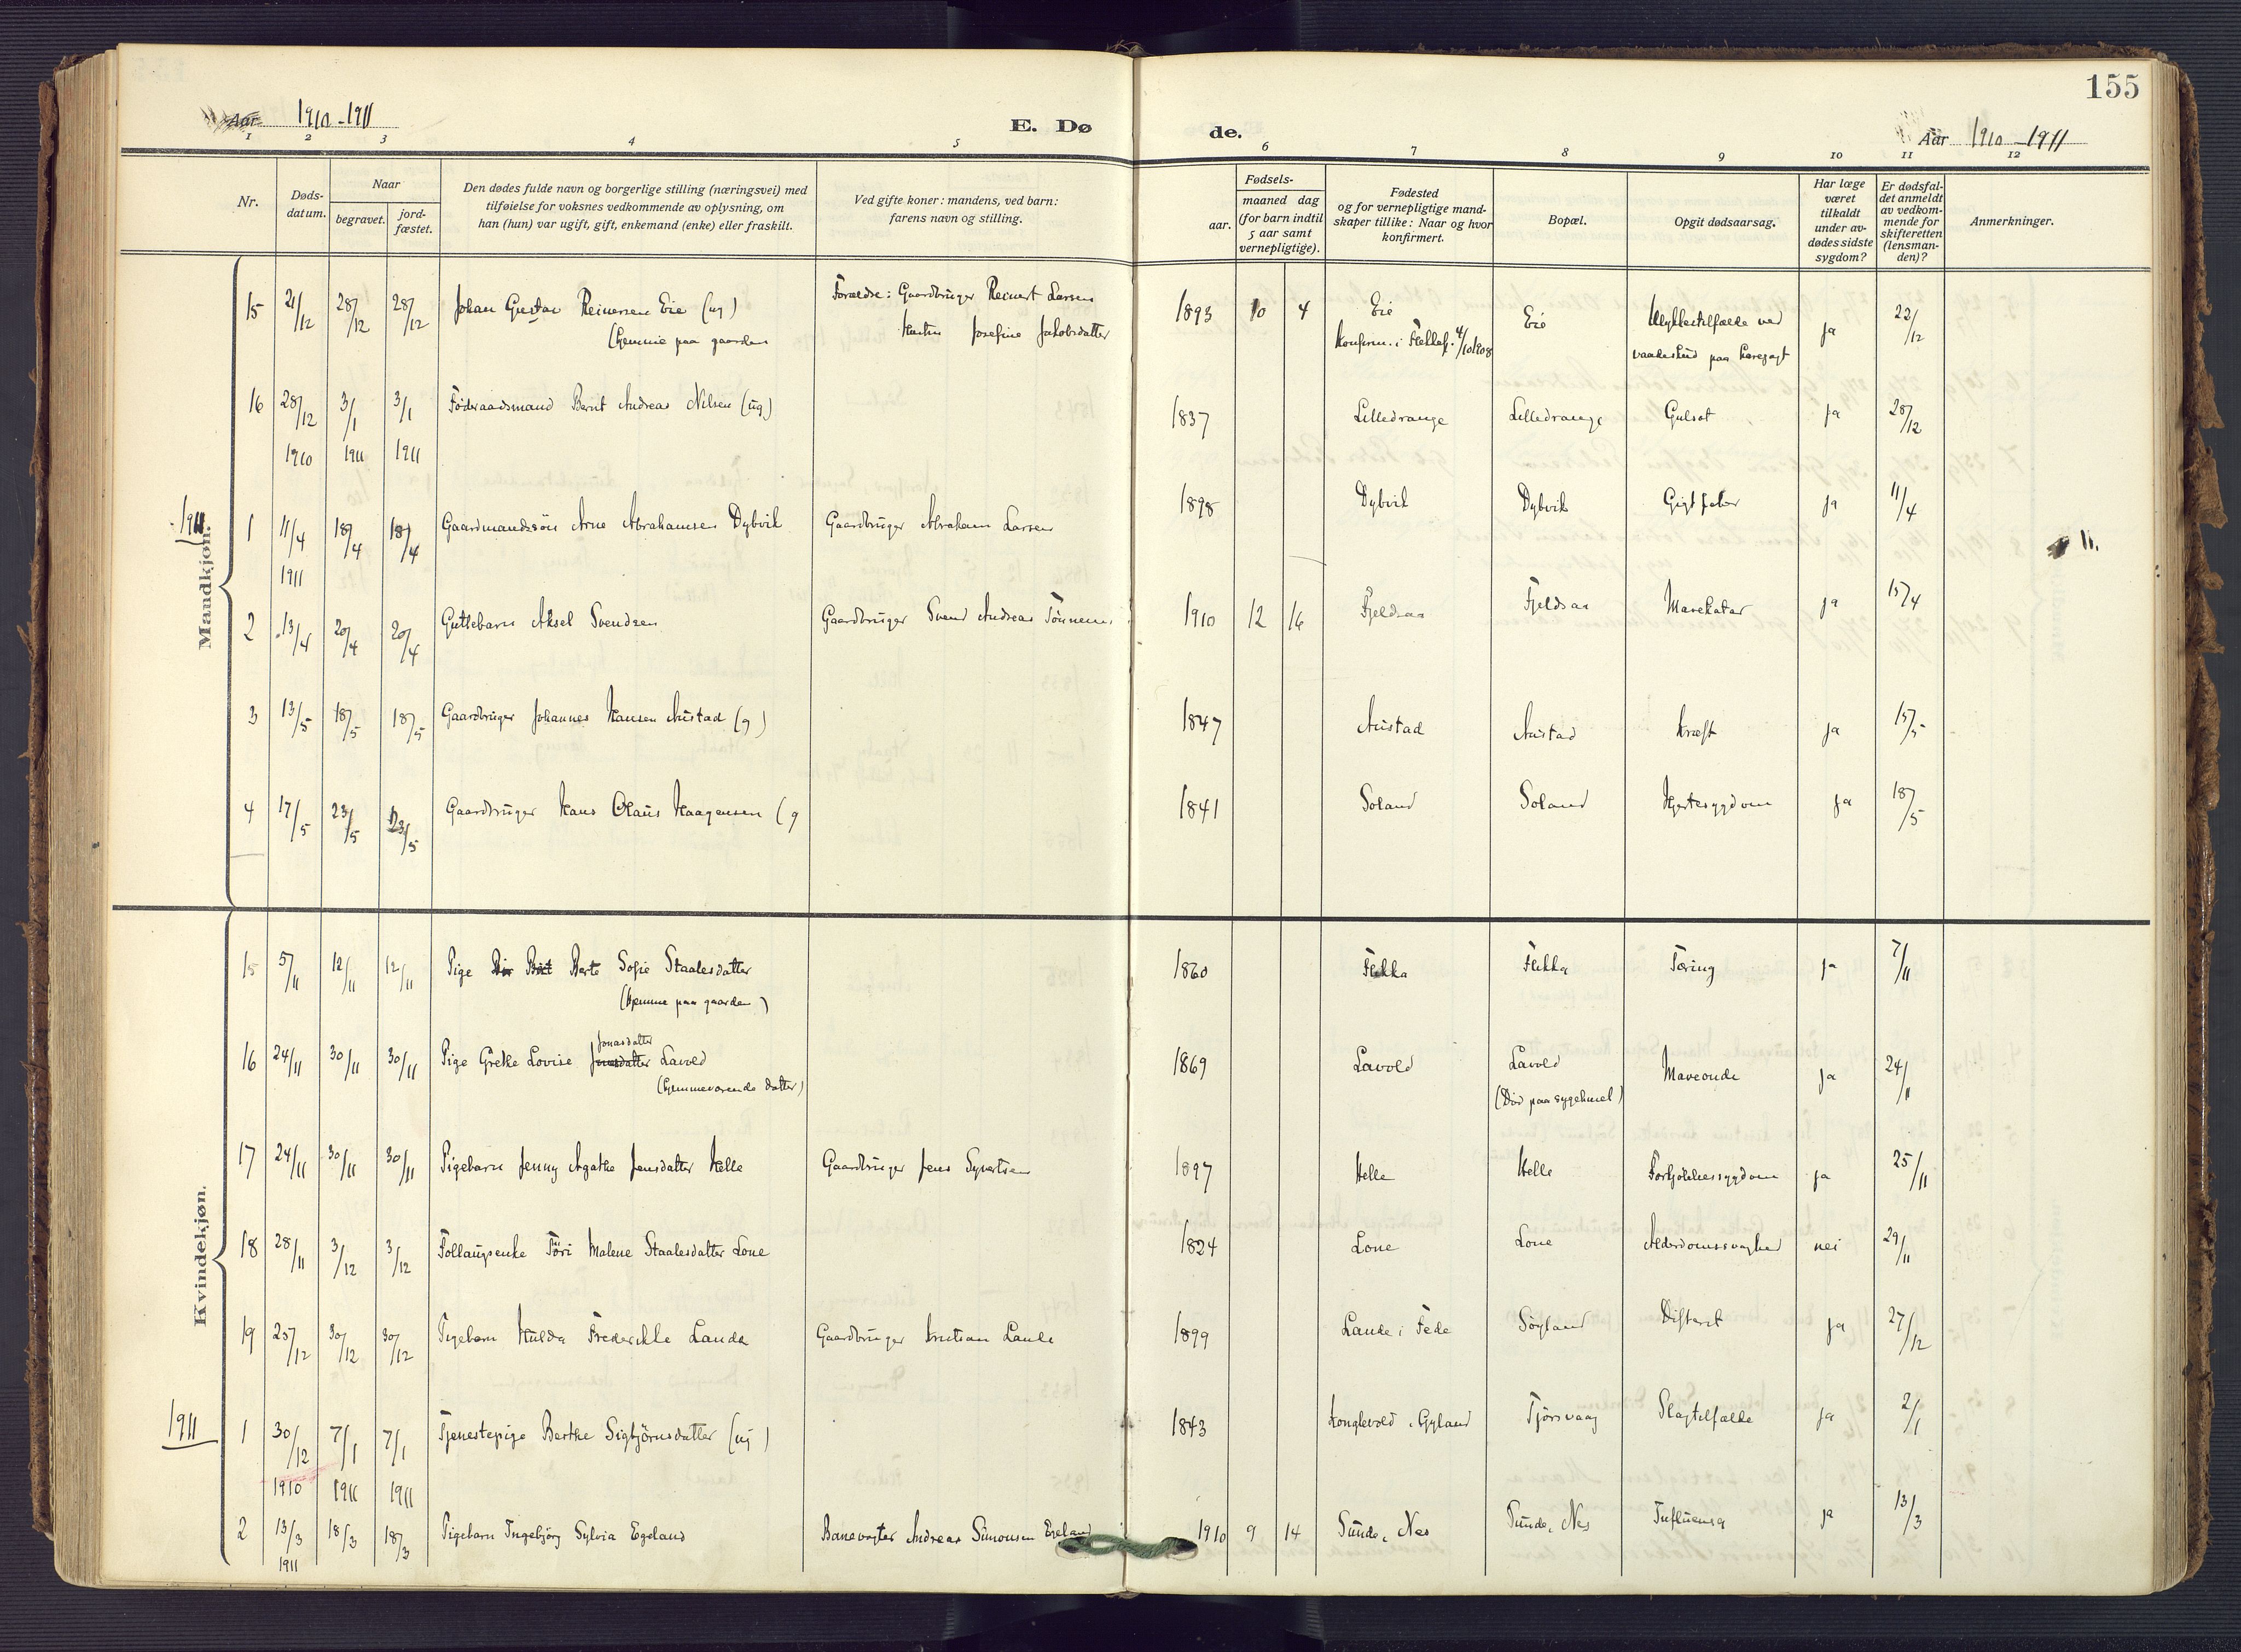 155
Aar 1910-1911
E. Dø de.
Aar 1910-1911
1 2 3 4 5 6 7 8 9 10 11 12
Nr.
Døds-
datum.
Naar
begravet.
jord-
fæstet.
Den dødes fulde navn og borgerlige stilling (næringsvei) med
tilføielse for voksnes vedkommende av oplysning, om
han (hun) var ugift, gift, enkemand (enke) eller fraskilt.
Ved gifte koner: mandens, ved barn:
farens navn og stilling.
Fødsels-
aar.
maaned dag
(for barn indtil
5 aar samt
vernepligtige).
Fødested
og for vernepligtige mand-
skaper tillike: Naar og hvor
konfirmert.
Bopæl.
Opgit dødsaarsag.
Har læge
været
tilkaldt
under av-
dødes sidste
sygdom?
Er dødsfal-
det anmeldt
av vedkom-
mende for
skifteretten
(lensman-
den)?
Anmerkninger.
Mandkjøn.
15 21/12 28/12 28/12 Johan Gustav Reinersen Eie (ug) Forældre: Gaardbruger Reinert Larsen 1893 10 4 Eie Eie Ulykkestilfælde ved ja 22/12
(hjemme paa gaarden Hustru Josefine Jakobsdatter Konfirm. i Flekkef. 4/10 1908 vaadeskud paa harejagt
16 28/12 3/1 3/1 Føderaadsmand Bernt Andreas Nilsen (ug) 1837 Lilledrange Lilledrange Gulsot ja 28/12
1910 1911 1911
1911
1 11/4 18/4 18/4 Gaardmandssön Arne Abrahamsen Dybvik Gaardbruger Abraham Larsen 1898 Dybvik Dybvik Gigtfeber ja 11/4
1911
11.
2 13/4 20/4 20/4 Guttebarn Aksel Svendsen Gaardbruger Svend Andreas Tönnesen 1910 12 16 Fjeldsaa Fjeldsaa Mavekatar ja 15/4
3 13/5 18/5 18/5 Gaardbruger Johannes Hansen Austad (g) 1847 Austad Austad Kræft ja 15/5
4 17/5 23/5 23/5 Gaardbruger Hans Olaus Haagensen (g 1841 Soland Soland Hjertesygdom ja 18/5
Kvindekjøn.
15 5/11 12/11 12/11 Pige Berte Sofie Staalesdatter 1860 Flikka Flikka Tæring ja 7/11
(hjemme paa gaarden)
16 24/11 30/11 30/11 Pige Grethe Lovise Jonasdatter Lavold 1869 Lavold Lavold Maveonde ja 24/11
(hjemmeværende datter) (Död paa sygehuset)
17 24/11 30/11 30/11 Pigebarn Jenny Agathe Jensdatter Helle Gaardbruger Jens Syvertsen 1897 Helle Helle ja 25/11
18 28/11 3/12 3/12 Follaugsenke Töri Malene Staalesdatter Lone 1824 Lone Lone Alderdomssvaghed nei 29/11
19 25/12 30/12 30/12 Pigebarn Hulda Frederikke Lande Gaardbruger Kristian Lande 1899 Lande i Fede Söyland Difterit ja 27/12
1911
1 30/12 7/1 7/1 Tjenestepige Berthe Sigbjörnsdatter (ug) 1843 Konglevold i Gyland Tjörsvaag Slagtilfælde ja 2/1
1910 1911 1911
2 13/3 18/3 18/3 Pigebarn Ingebjörg Sylvia Egeland Banevogter Andreas Simonsen Egeland 1910 9 14 Sunde, Nes Sunde, Nes Influensa ja 13/3
1911